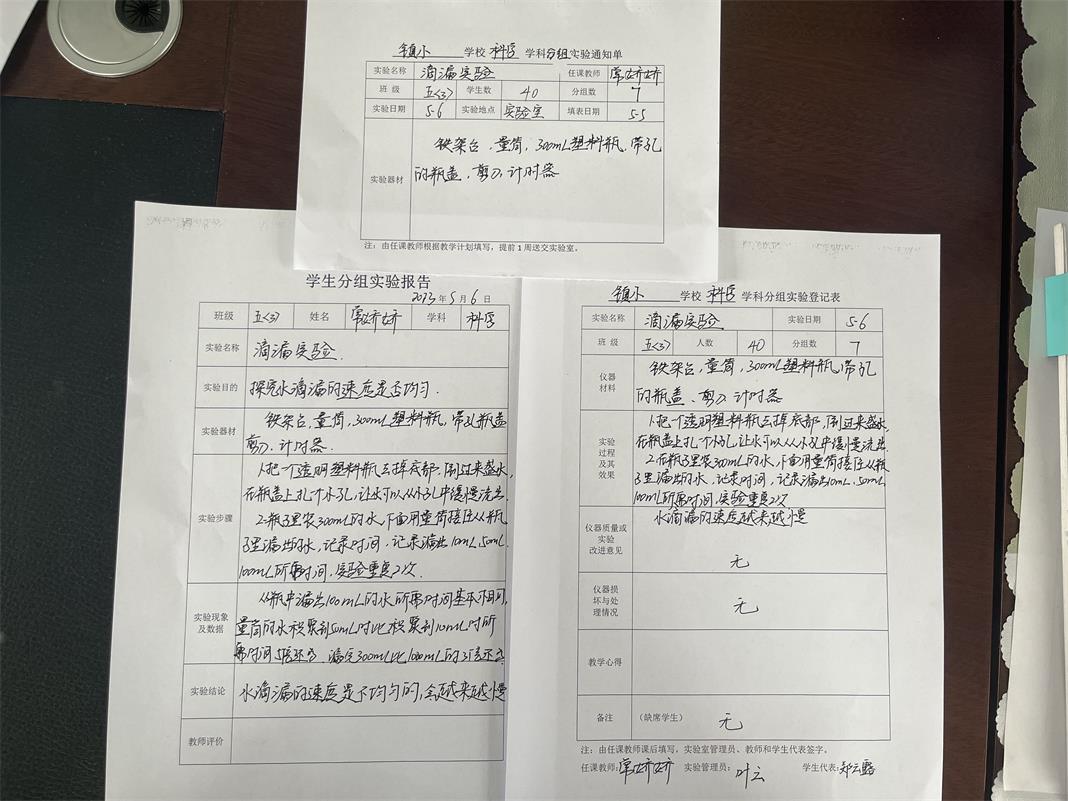 镇小 学校 科学 学科分组实验通知单
实验名称 滴漏实验 任课教师 常娇娇
班 级 五<3> 学生数 40 分组数 7
实验日期 5-6 实验地点 实验室 填表日期 5-5
实验器材
铁架台,量筒,300mL塑料瓶,带孔
的瓶盖,剪刀,计时器
注:由任课教师根据教学计划填写,提前1周送交实验室。
学生分组实验报告
2023年5月6日
班级 五<3> 姓名 常娇娇 学科 科学
实验名称 滴漏实验.
实验目的 探究水滴漏的速度是否均匀.
实验器材
铁架台,量筒,300mL塑料瓶,带孔瓶盖
剪刀、计时器.
实验步骤
1.把一个透明塑料瓶去掉底部,倒过来盛水,
在瓶盖上扎个小孔,让水可以从小孔中缓慢流出.
2.瓶子里装300mL的水,下面用量筒接住从瓶
子里漏出的水,记录时间,记录漏出10mL、50mL、
100mL所需时间,实验重复2次.
实验现象
及数据
从瓶中漏出100mL的水所需时间基本不相同,
量筒的水积累到50mL时比积累到10mL时所
需时间5倍还多.漏完300mL比100mL的3倍还多.
实验结论 水滴漏的速度是不均匀的,会越来越慢
教师评价
镇小 学校 科学 学科分组实验登记表
实验名称 滴漏实验 实验日期 5-6
班 级 五<3> 人数 40 分组数 7
仪器
材料
铁架台,量筒,300mL塑料瓶,带孔
的瓶盖、剪刀 计时器
实验
过程
及其
效果
1.把一个透明塑料瓶去掉底部,倒过来盛水,
在瓶盖上扎个小孔,让水可以从小孔中缓慢流出.
2.在瓶子里装300mL的水,下面用量筒接住从瓶
子里漏出的水,记录时间,记录漏出10mL、50mL
100mL所需时间,实验重复2次
水滴漏的速度越来越慢
仪器质量或
实验
改进意见
无
仪器损
坏与处
理情况
无
教学心得
备注 (缺席学生) 无
注:由任课教师课后填写,实验室管理员、教师和学生代表签字。
任课教师:常娇娇 实验管理员:叶云 学生代表:郑云露